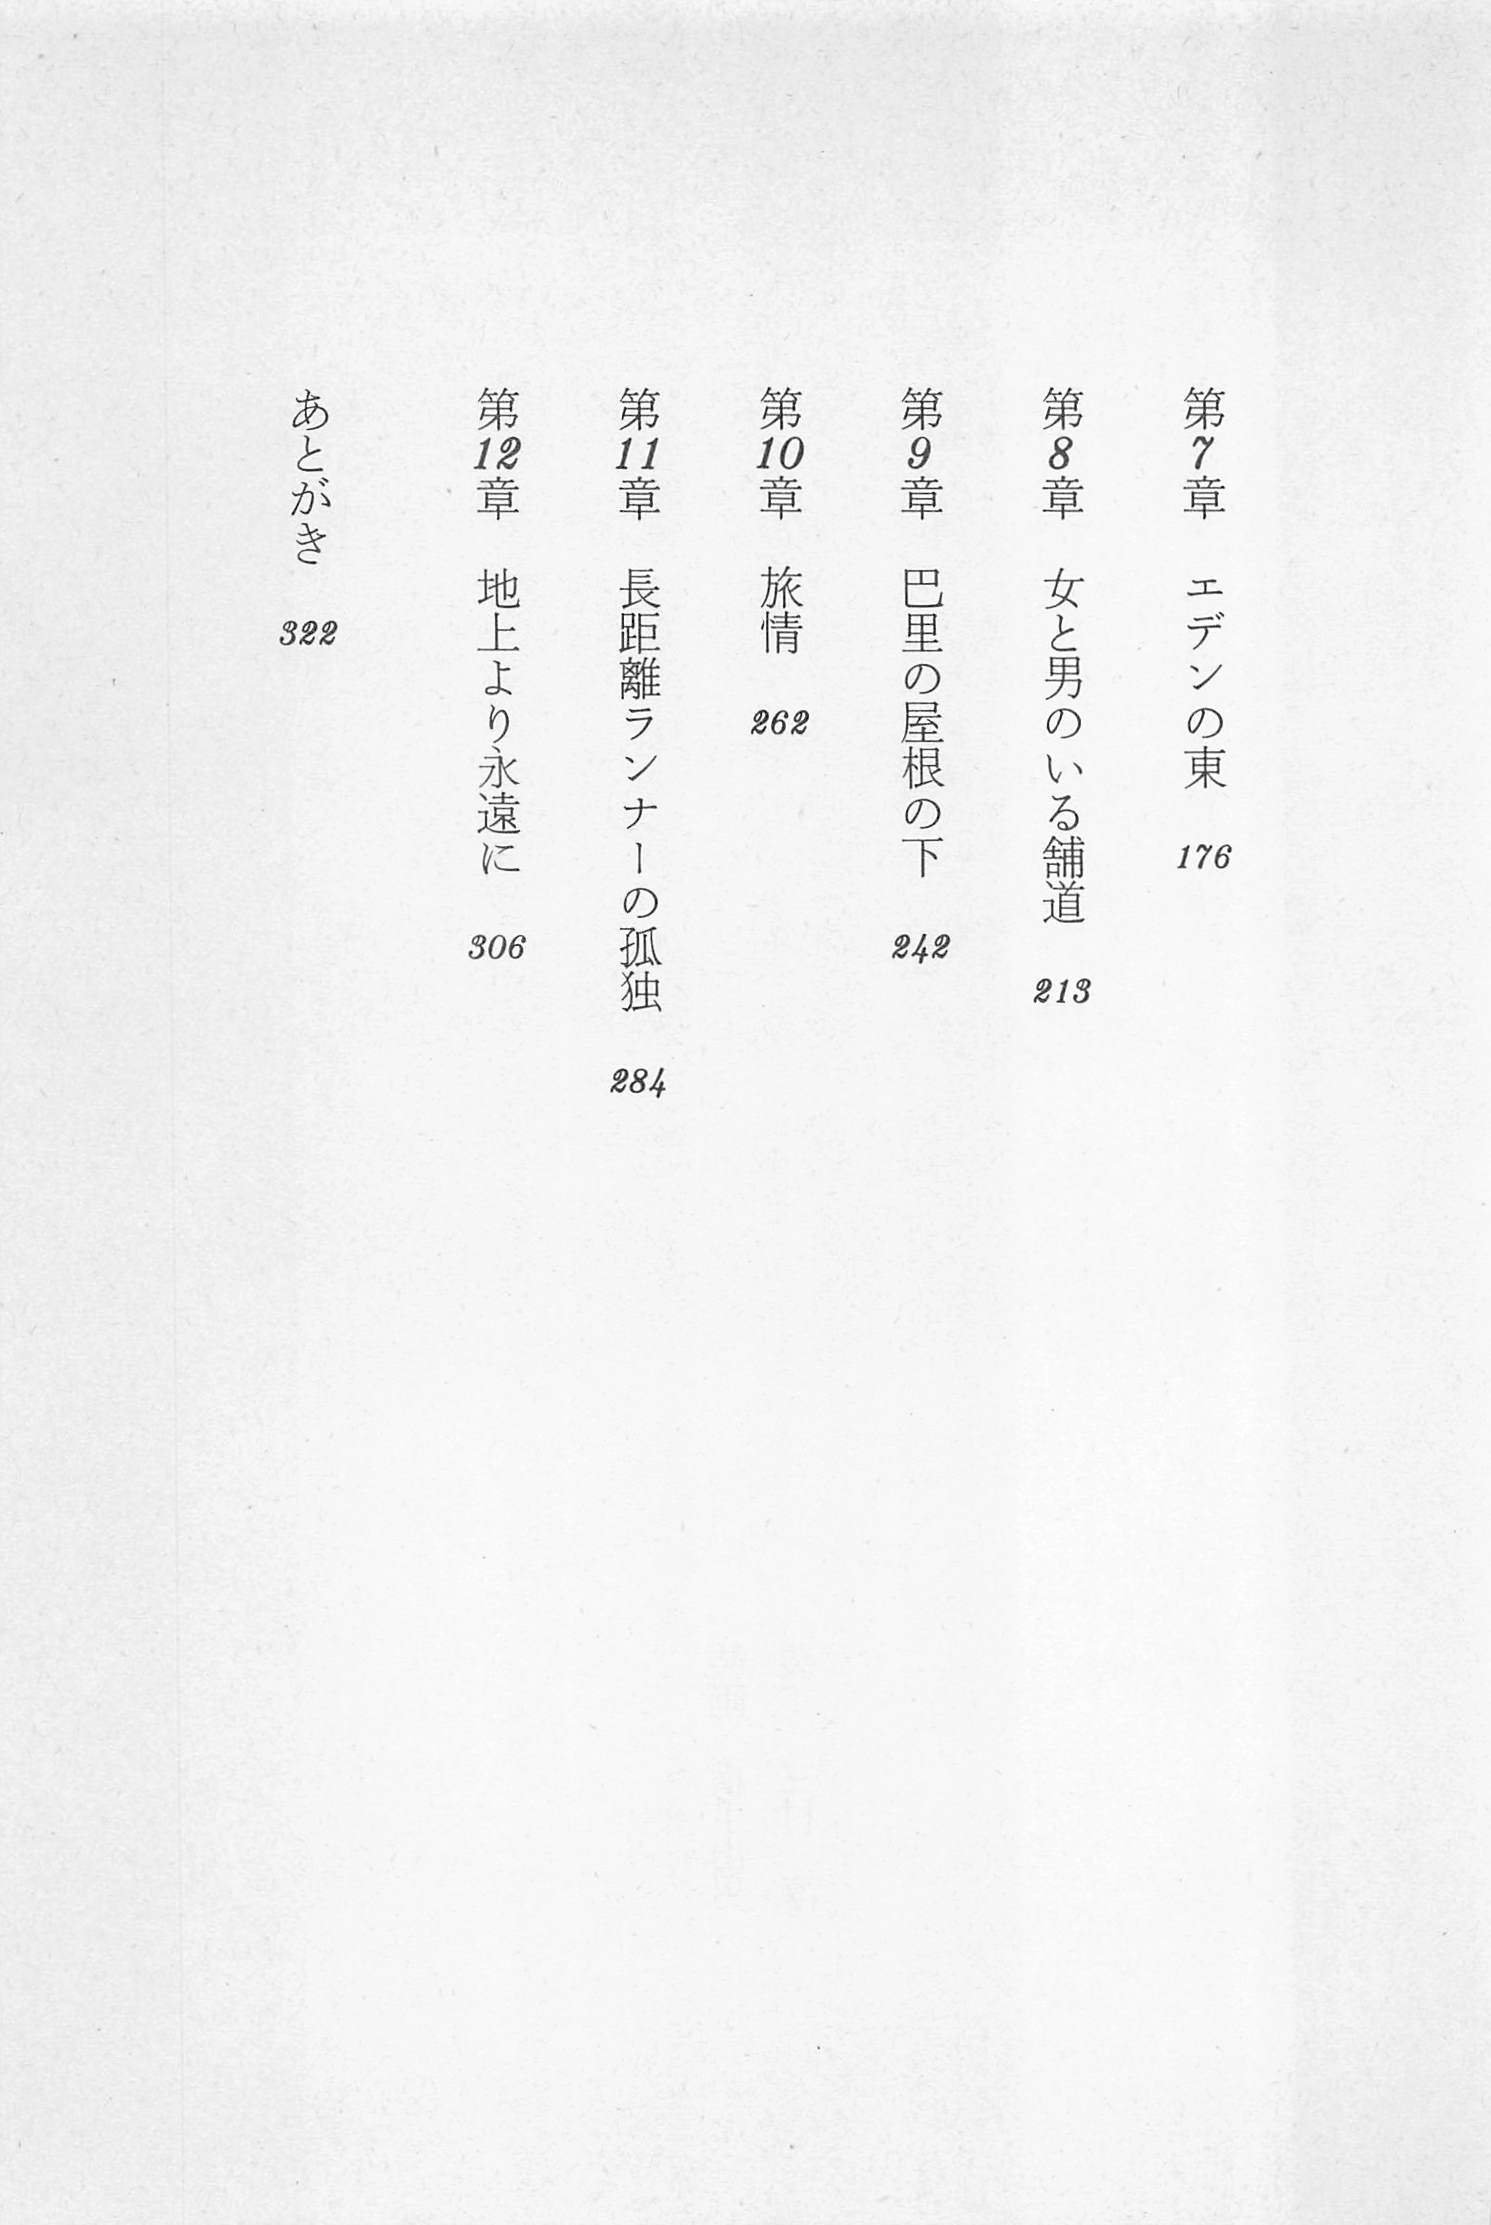 第7章　エデンの東　176
第8章　女と男のいる舗道　213
第9章　巴里の屋根の下　242
第10章　旅情　262
第11章　長距離ランナーの孤独　284
第12章　地上より永遠に　306
あとがき　322